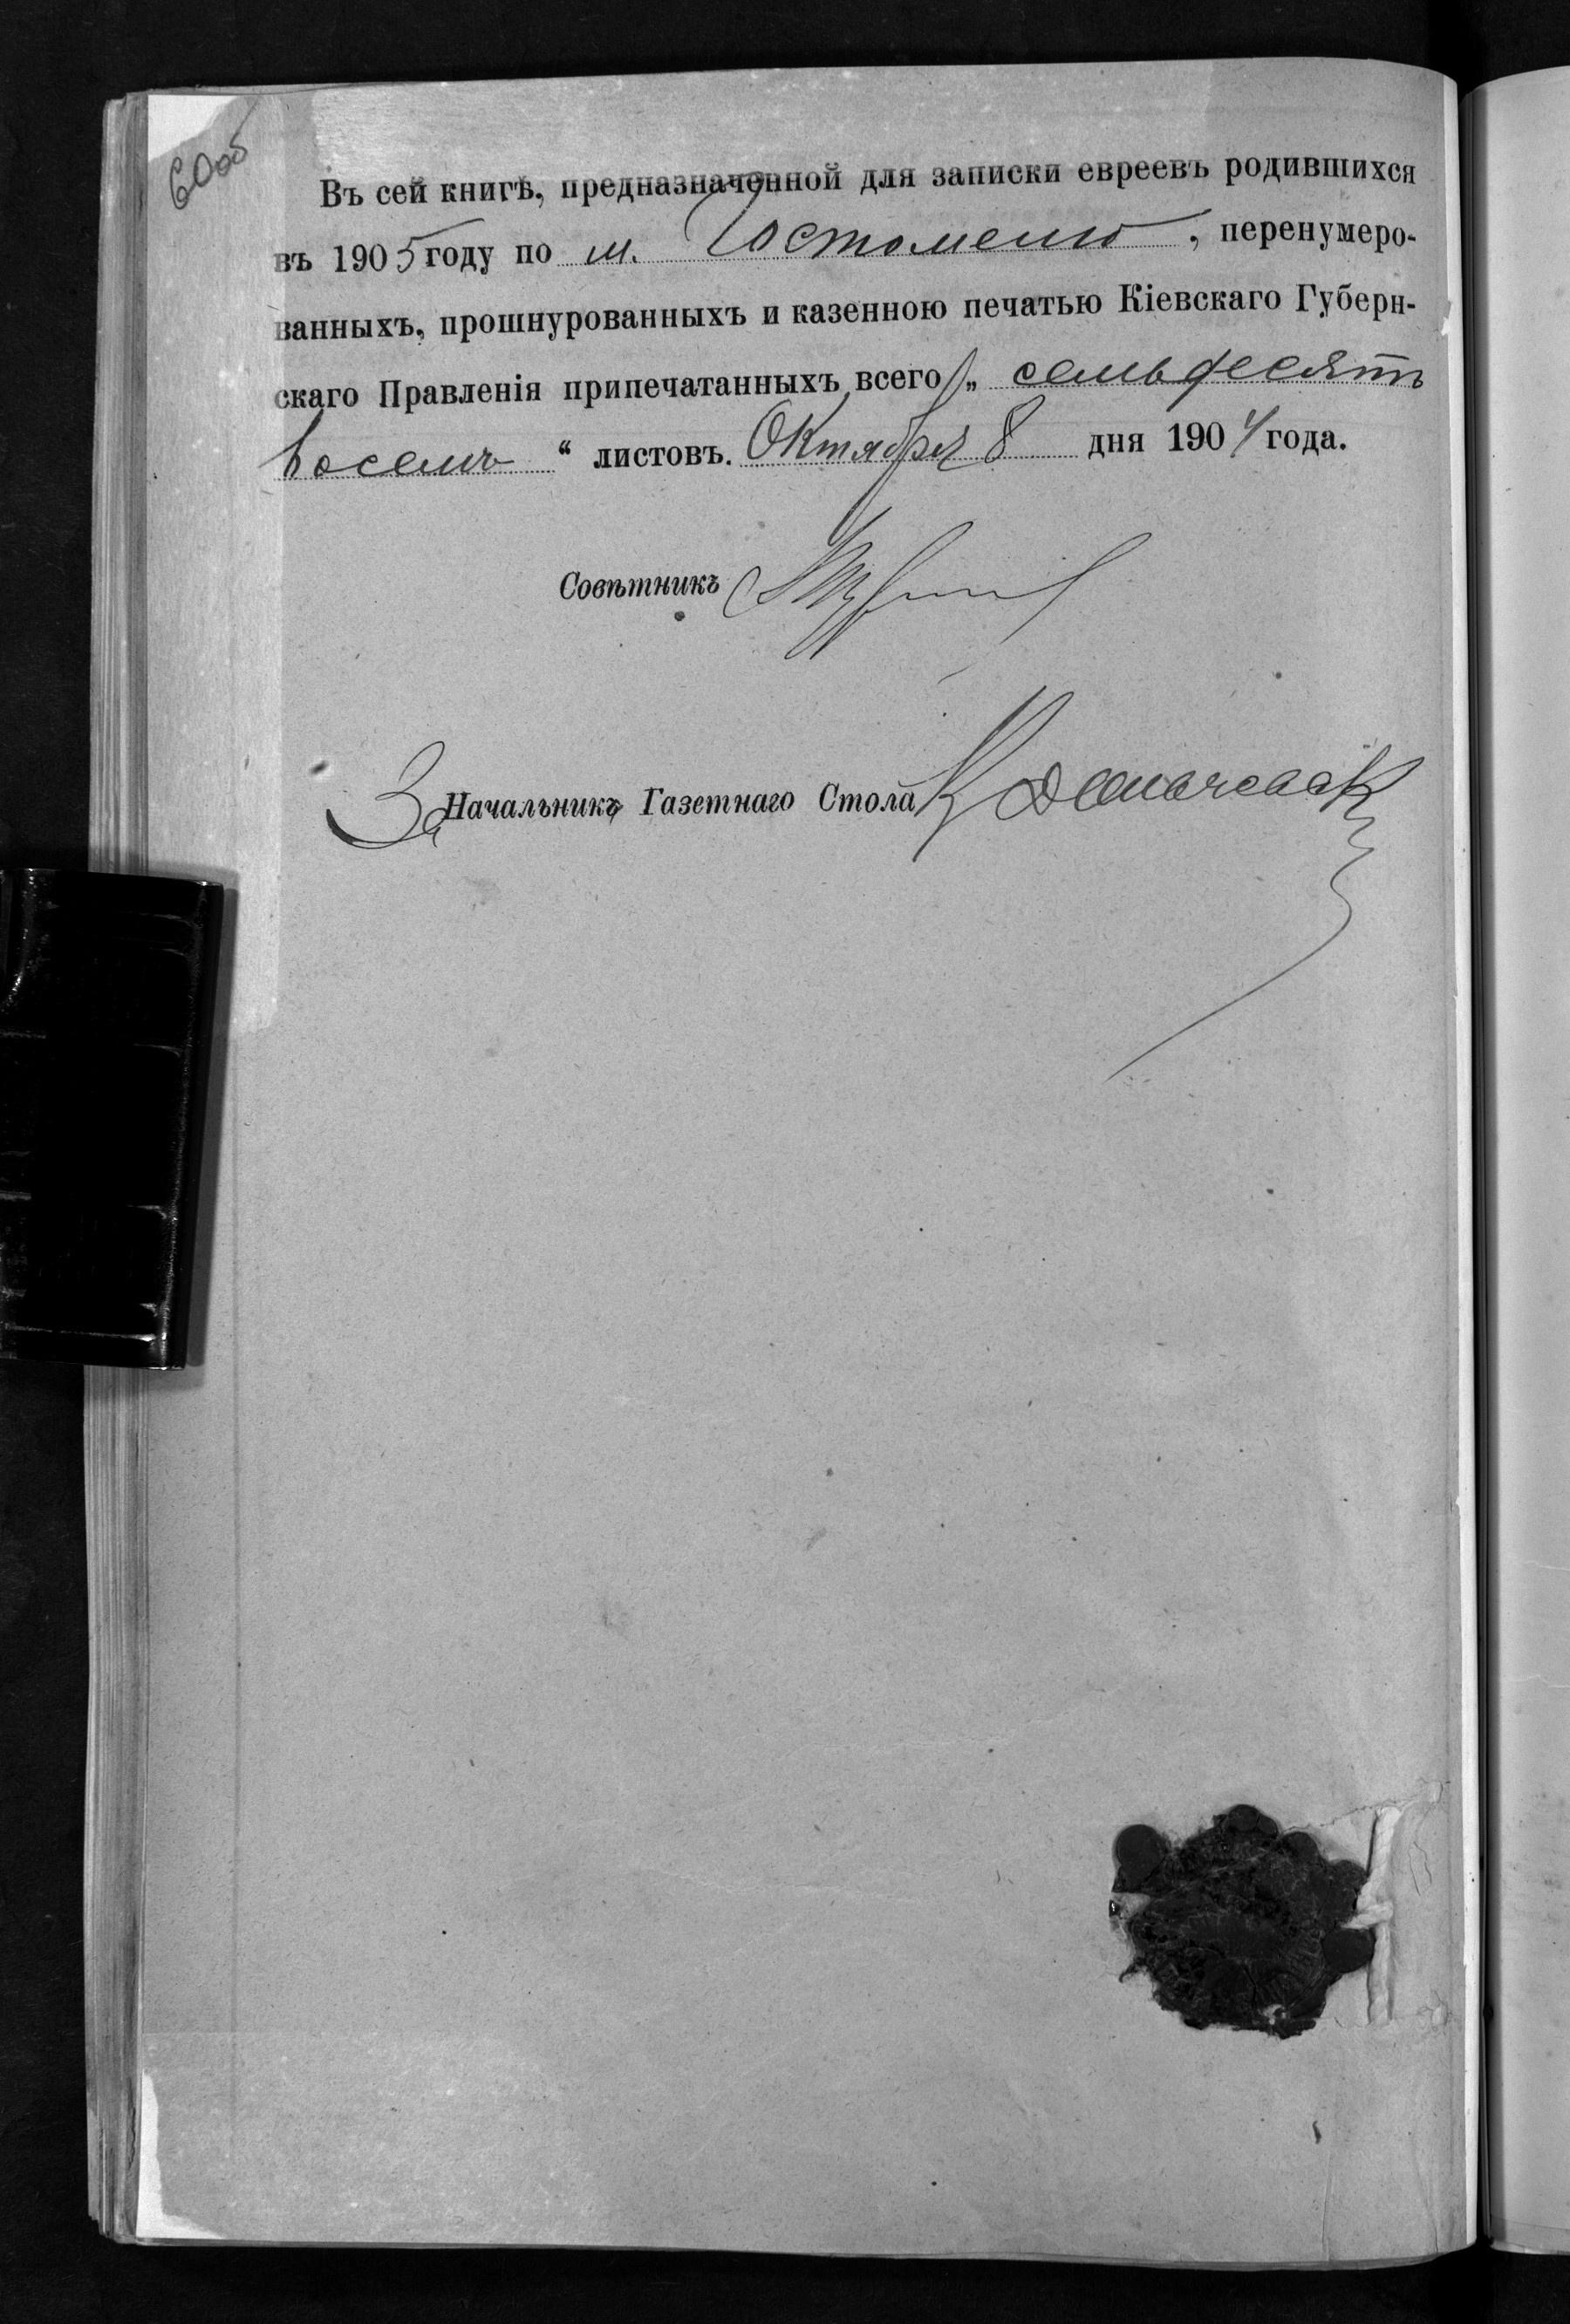 60об
Въ сей книгѣ, предназначенной для записки евреевъ родившихся
въ 1905 году по м. Гостомелю, перенумеро-
ванныхъ, прошнурованныхъ и казенною печатью Кіевскаго Губерн-
скаго Правленія припечатанныхъ всего „ семьдесятъ
восемь “ листовъ. Октября 8 дня 1904 года.
Совѣтникъ
За Начальника Газетнаго Стола